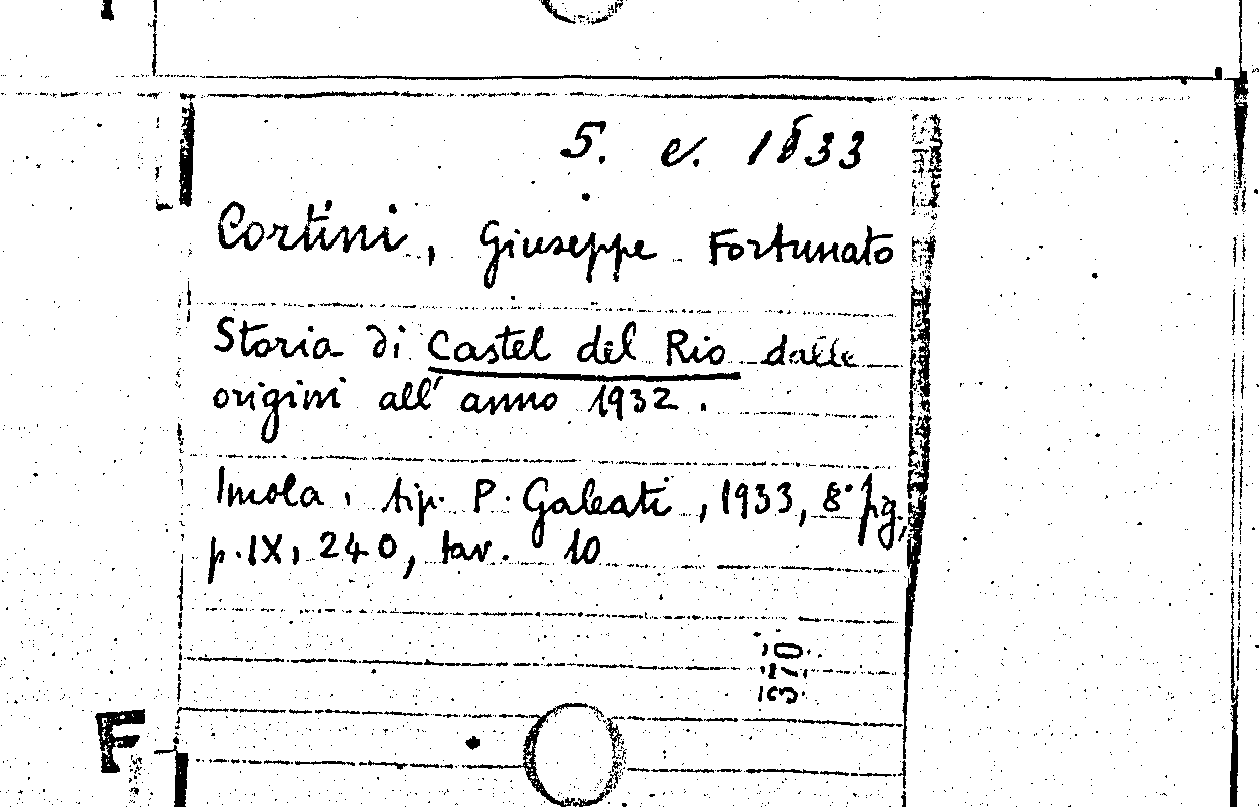 5. c. 1833
Cortini, Giuseppe Fortunato
Storia di Castel del Rio dalle
origini all' anno 1932.
Imola, tip. P. Galeati, 1933, 8° fig,
p. IX, 240, tav. 10
370
F